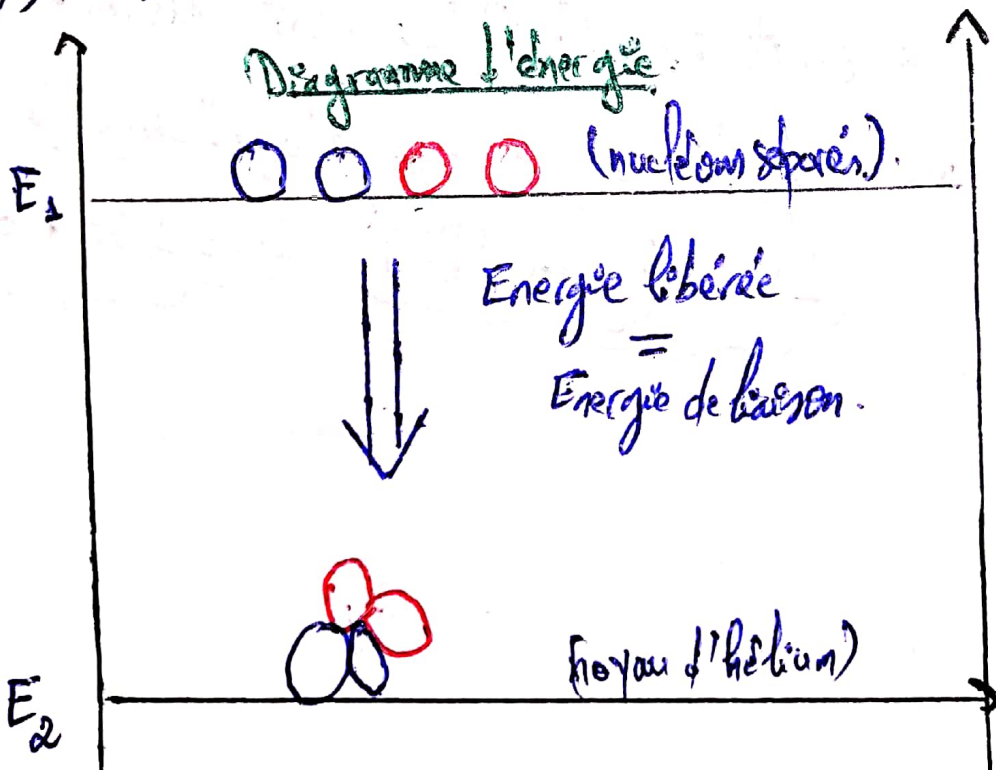 Diagramme d'énergie.
E1 (nucléons séparés).
Energie libérée
=
Energie de liaison.
E2 (noyau d'hélium)